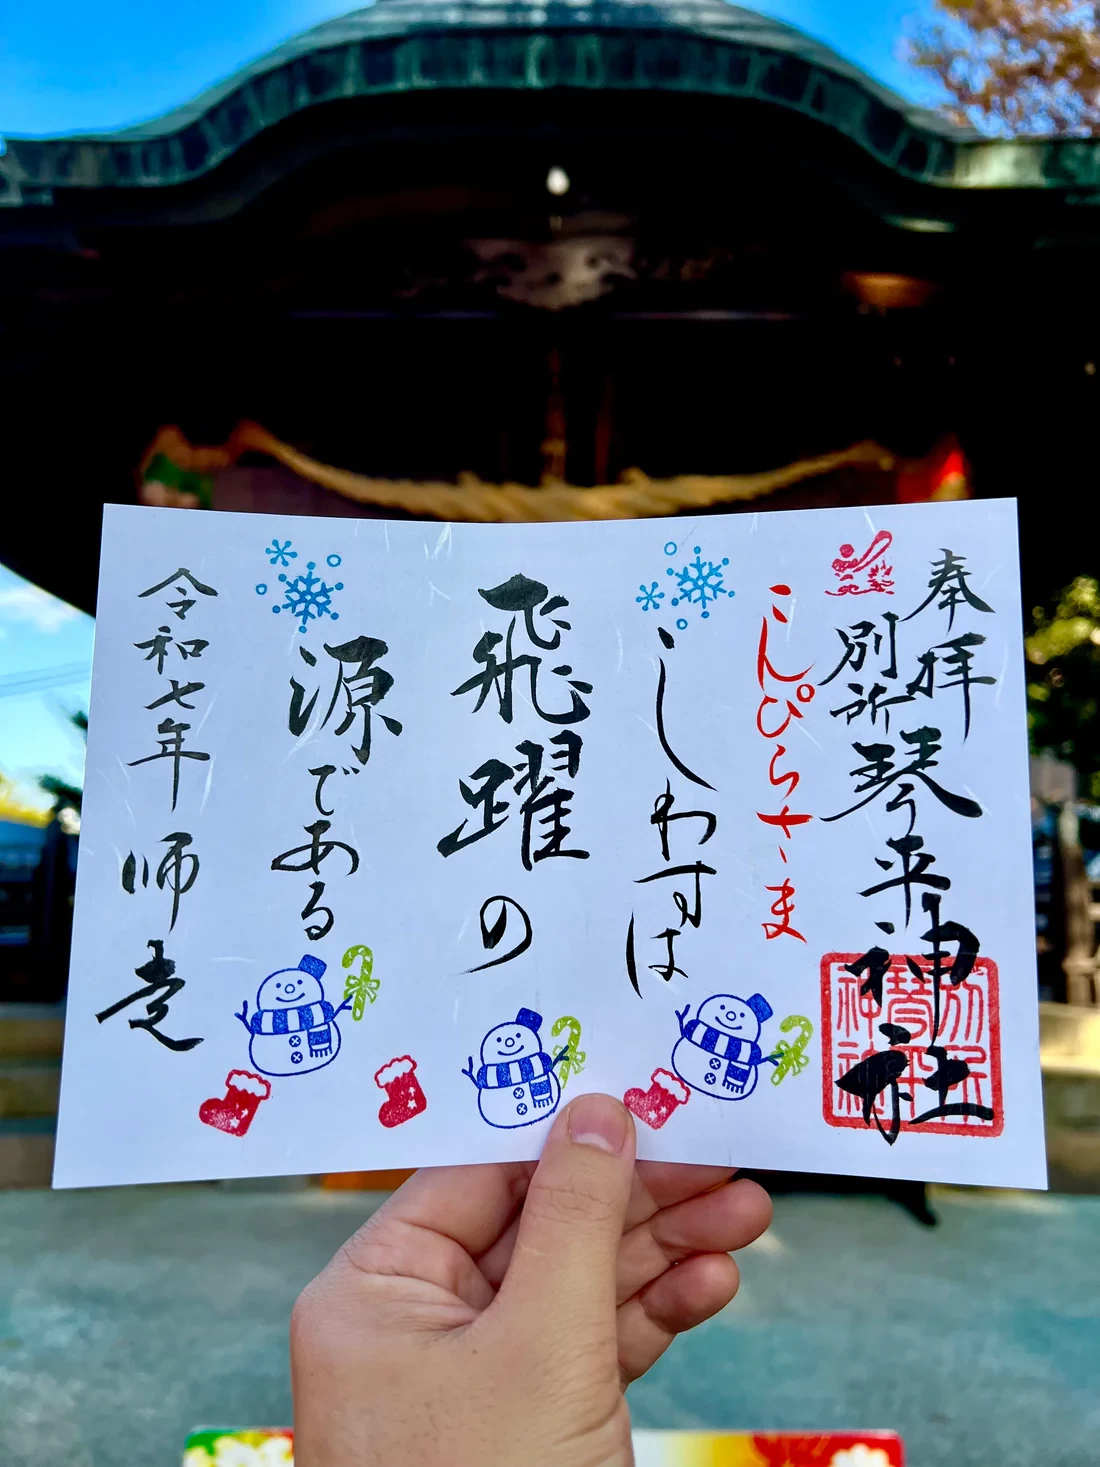 奉拝
別所琴平神社
こんぴらさま
しわすは
飛躍の
源である
令和七年 師走